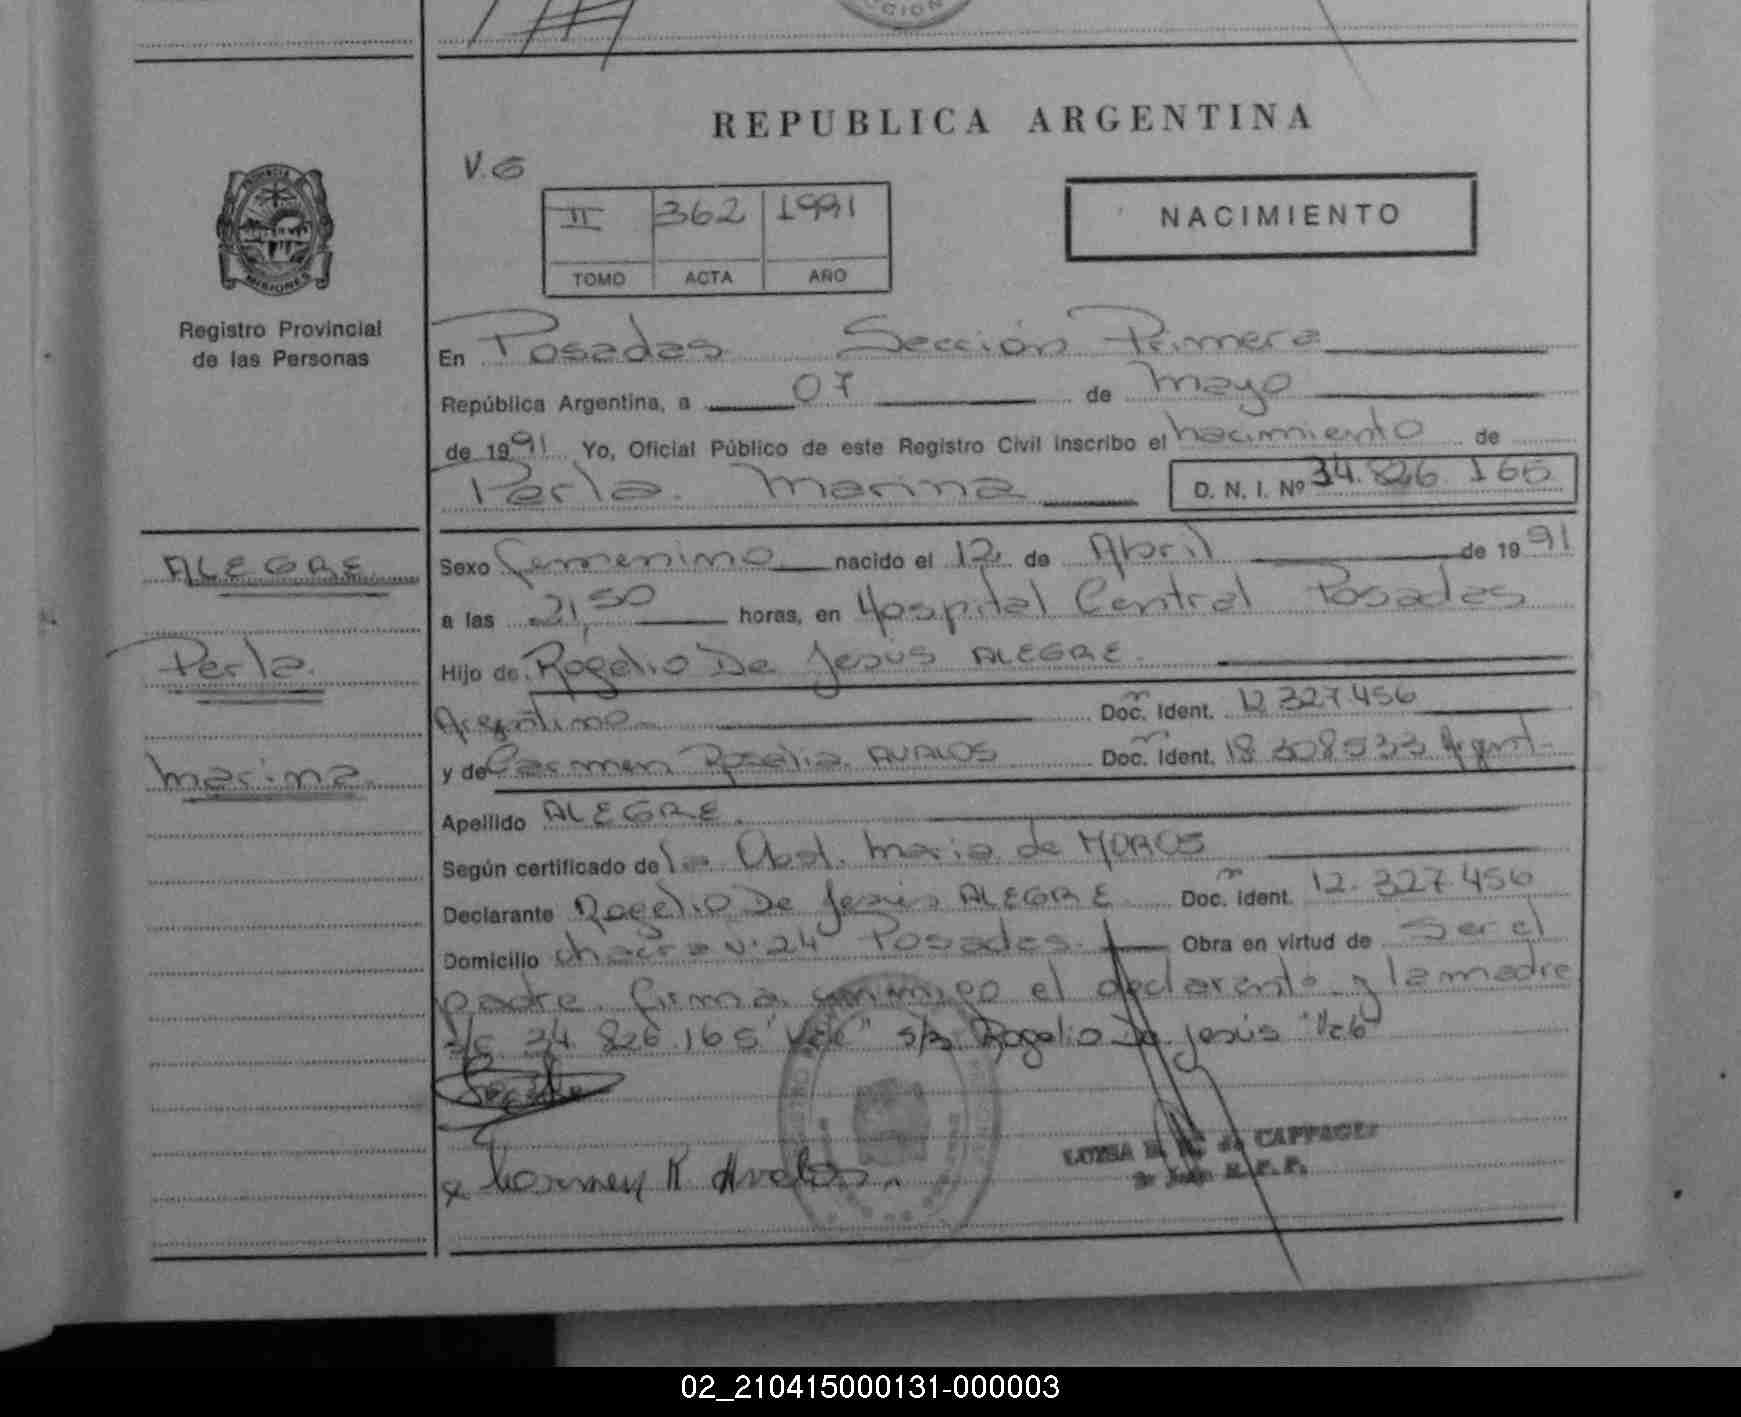 REPUBLICA ARGENTINA
V.G
NACIMIENTO
II 362 1991
TOMO ACTA AÑO
PROVINCIA
MISIONES
Registro Provincial
de las Personas
En Posadas Sección Primera
República Argentina, a 07 de Mayo
de 1991 Yo, Oficial Público de este Registro Civil inscribo el nacimiento de
Perla Marina D. N. I. Nº 34.826.165
ALEGRE
Perla
Marina
Sexo femenino nacido el 12 de Abril de 1991
a las 21,50 horas, en Hospital Central Posadas
Hijo de Rogelio De Jesús ALEGRE
Argentino Doc. Ident. 12.327.456
y de Carmen Rosalia AVALOS Doc. Ident. 18.308533 Argent.
Apellido ALEGRE
Según certificado de la Obst. Maria de
Declarante Rogelio De Jesús ALEGRE Doc. Ident. 12.327.456
Domicilio chacra Nº 24 Posadas Obra en virtud de Ser el
padre. firma conmigo el declarante y la madre
34.826.165 "Vale" s/b Rogelio De Jesús "Vale"
Carmen R Avalos
LUISA de
02_210415000131-000003